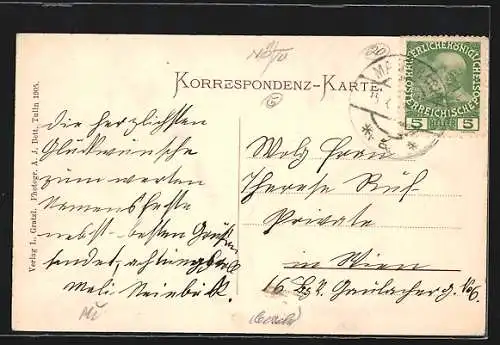 KORRESPONDENZ-KARTE
KAISERLICHE KÖNIGLICHE
ÖSTERREICHISCHE
5 5
Verlag L. Gratzl. Photogr. A. J. Bott, Tulln 1905.
die herzlichsten
Glückwünsche
zum werten
Namensfeste
nebst besten Grüßen
sendet, achtungsvoll
Wolg Frau
Therese Ruf
Private
in Wien
16. Bz. Gaulacherg.